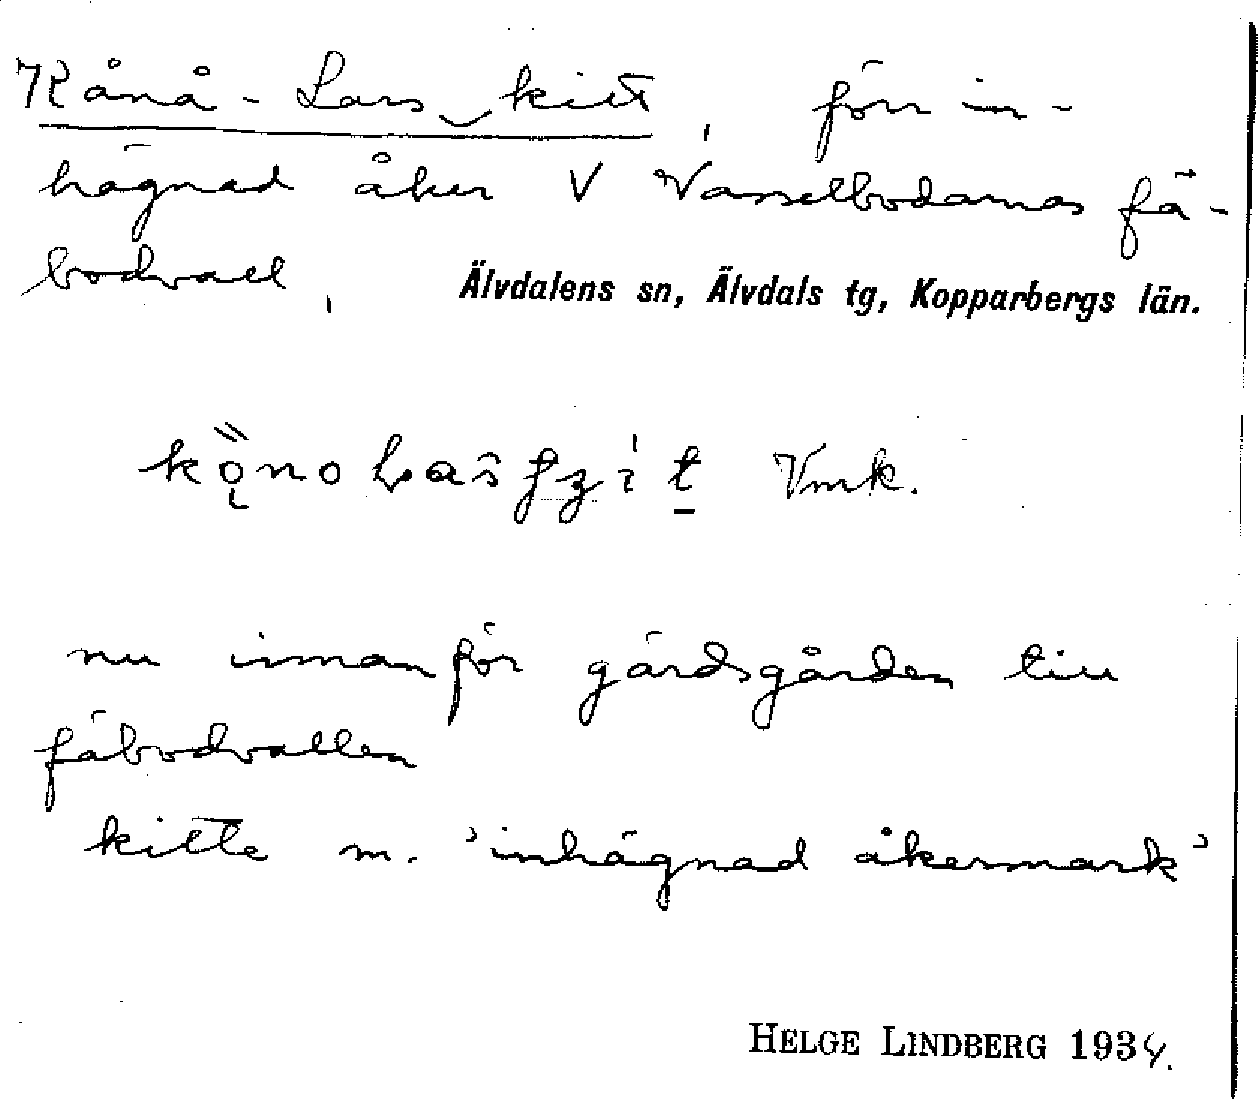 Kånå-Lars kitt, förr in-
hägnad åker V Vasselbodarnas fä-
bodvall, Älvdalens sn, Älvdals tg, Kopparbergs län.
Vmk.
nu innanför gärdsgården till
fäbodvallen
kitte m. 'inhägnad åkermark'
HELGE LINDBERG 1934.